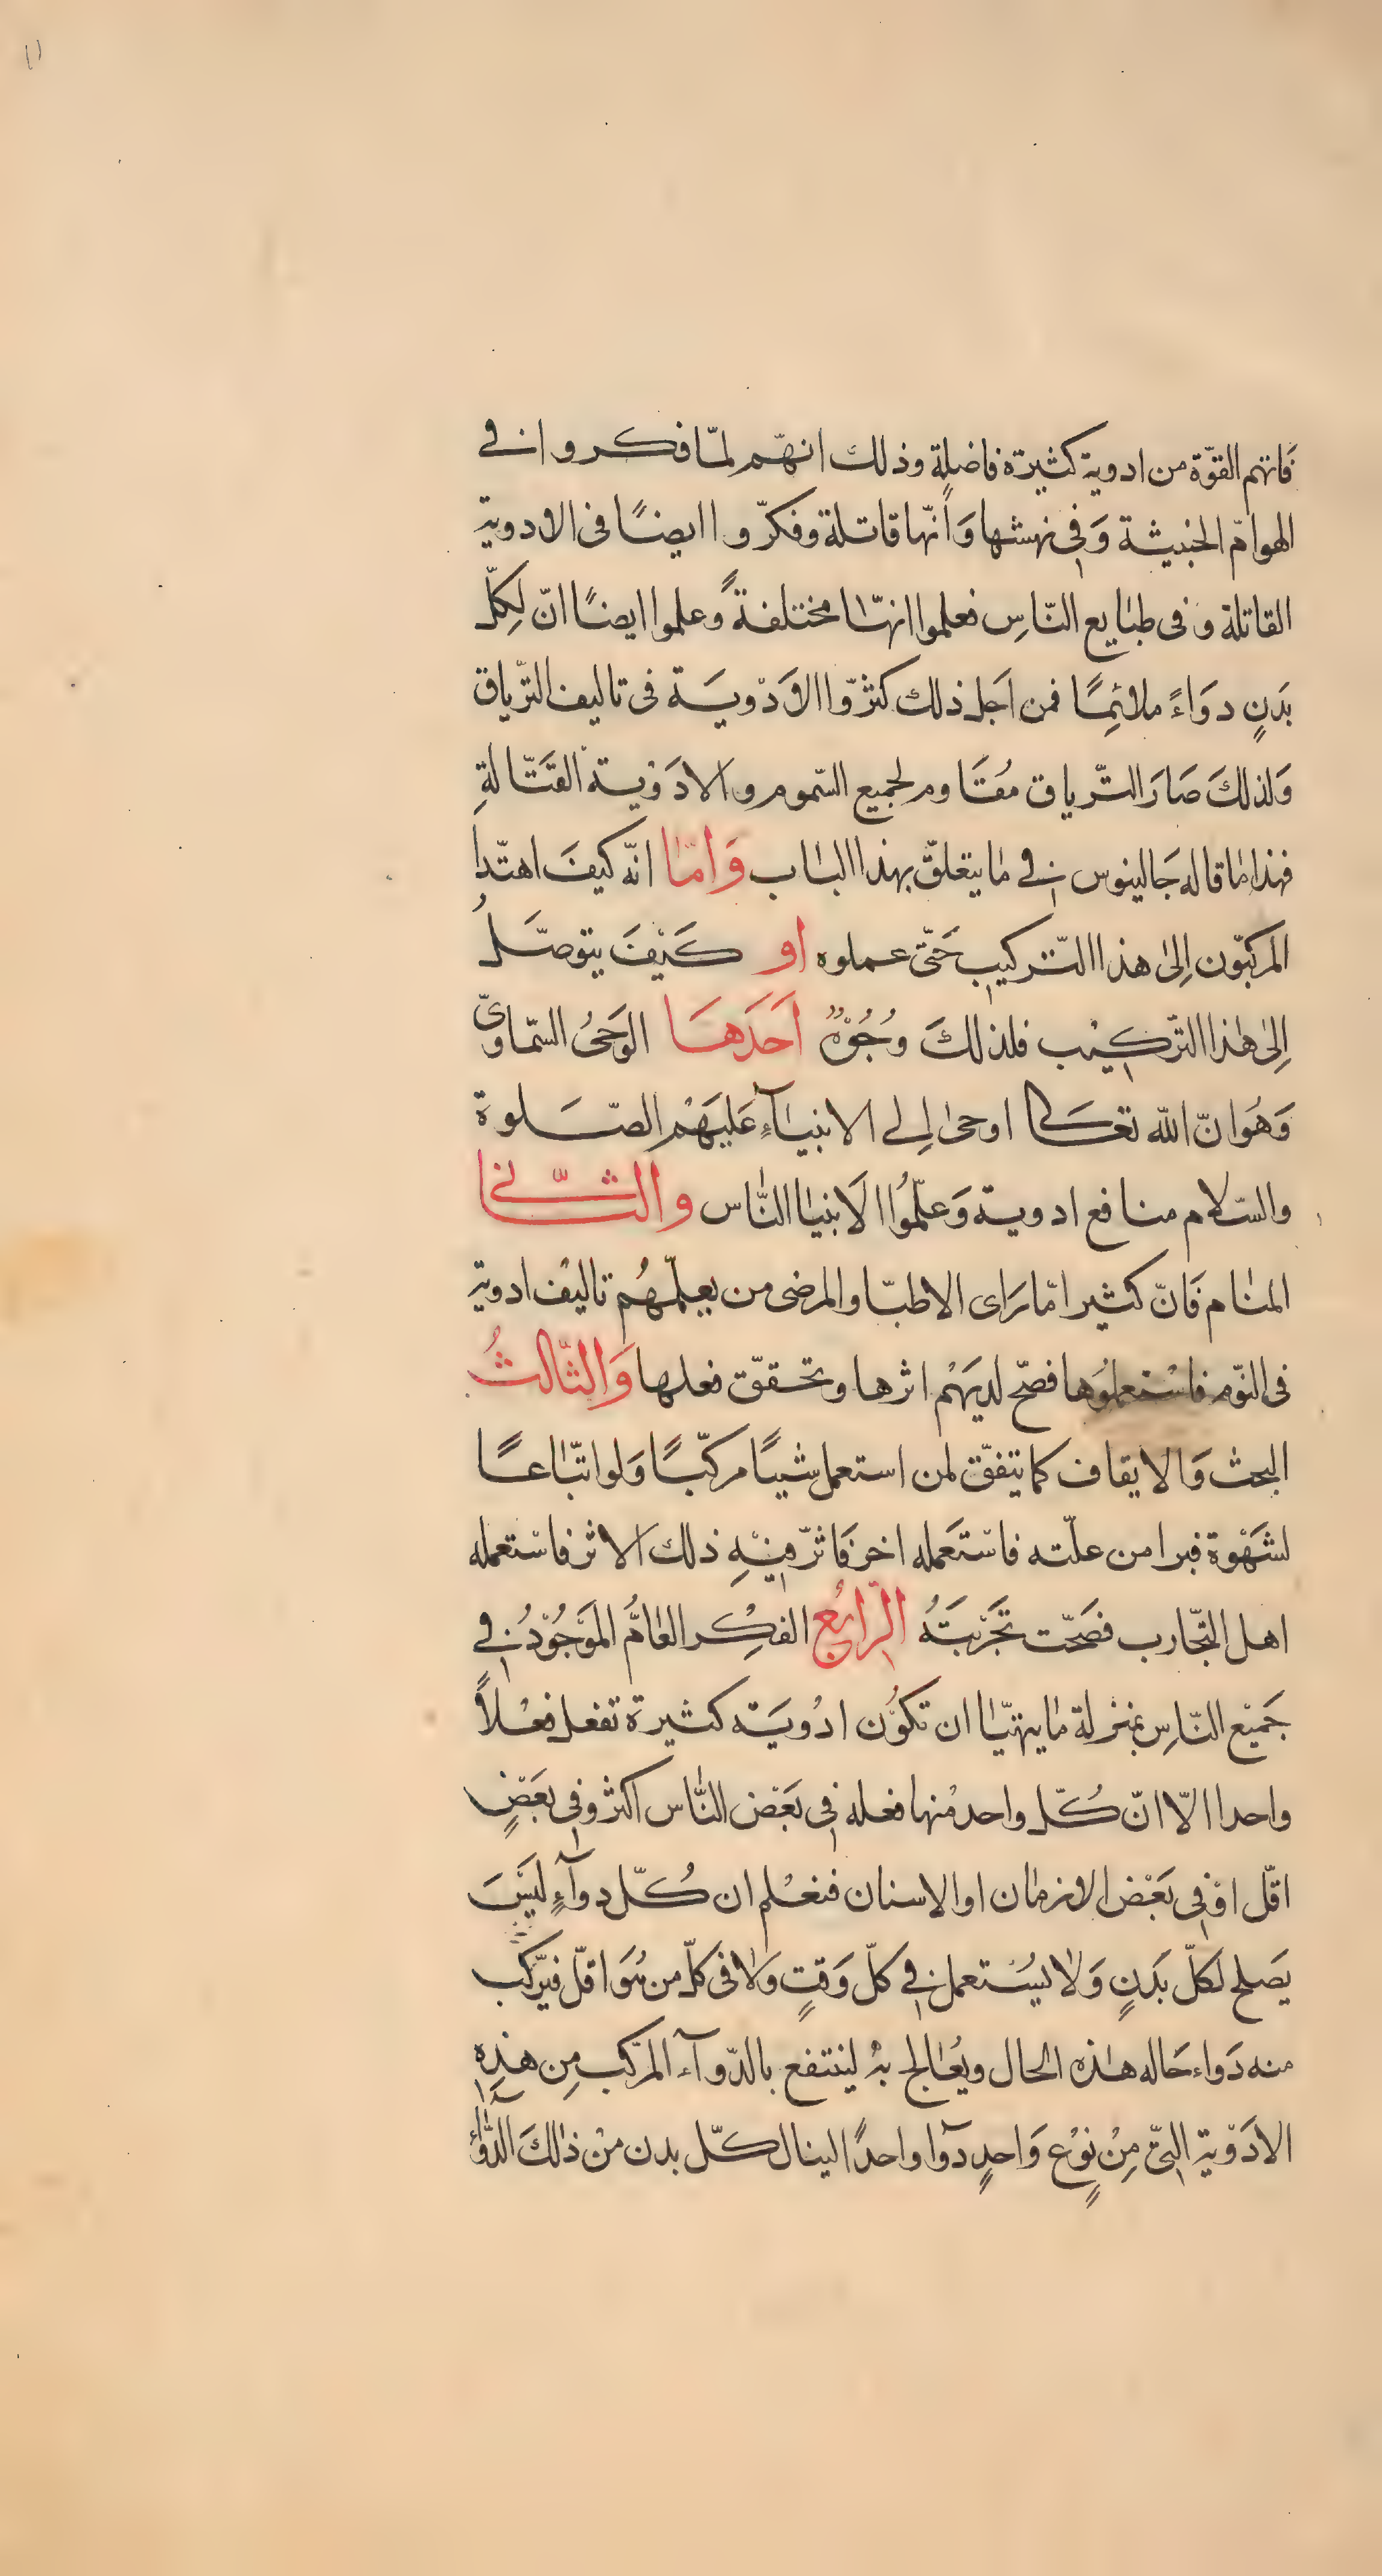 ١١
فاتهم القوّة من ادوية كثيرة فاضلة وذلك انهّم لمّا فكروا في
الهوامّ الخبيثة وَفي نهشها وَأنّها قاتلة وفكرّوا ايضًا فى الادوية
القاتلة وفى طبايع النّاسِ فعلموا انهّا مختلفةً وعلموا ايضًا انّ لِكلّ
بدَنٍ دوَاءً ملائِمًا فمن اَجل ذلك كثرّوا الاَدْويَة فى تاليف التّرياق
وَلذلكَ صَارَ التّرياق مُقاوم لجميع السّموم والادَوْية القتّالةِ
فهذا ما قاله جَالينوس في ما يتعلّق بهذا الباب وَامّا انّه كيفَ اهتّدا
المركبّون اِلى هذا التّركيب حَتّى عملوه او كَيْفَ يتوصّلُ
اِلى هٰذا التّركيْب فلذلكَ وُجُوْهٌ اَحَدَهَا الوَحىُ السّماوىّ
وَهُوَ انّ اللّه تعَالى اوحى اِلى الانبيآءِ عَليَهْم الصّلوة
والسّلام منافع ادوية وَعلّمُوا الاَنبيا النّاس والثّانى
المنام فَانّ كثيرا مّا رَاى الاطبّا والمرضى من يعلّمهُم تاليْف ادوية
فى النّوم فاسْتعملوُها فصَحّ لديَهْم اثرها وتحقّق فعلها وَالثّالثُ
البحث وَالايقاف كما يتفّق لمن استعمل شيئًا مركبًّا وَلو اتّباعًا
لشَهْوة فبرا من علّته فاسْتَعمله اخر فَاثرّ مِنْهِ ذلك الاثر فاسْتعمله
اهل التّجارب فصَحّت تَجْرَبَتَهُ الرّابعُ الفِكْر العامُّ الموَجُوْدُ في
جَميْع النّاسِ بمنزلة ما يتهيّا ان تكوُن ادْويَة كثيرة تفعل فعْلاً
واحدا الّا انّ كُلّ واحد مْنها فعله في بَعْض النّاس اكثر وفي بعَضٍ
اقّل اوْ في بَعْض الازمان او الاسنان فنعْلم ان كُلّ دوآءٍ ليَسَ
يَصلح لكلّ بَدَنٍ وَلا يسُتعمل في كلّ وَقتٍ وَلا فى كلّ من هُوَ اقلّ فيرّكب
منه دَواء حَاله هٰذه الحال ويُعالج بهْ لينتفع بالدّوآء المركّب مِن هذِه
الادَوْية التىّ مِنْ نوْع وَاحدٍ دوآا واحدًا لينال كلّ بدن منْ ذالكَ الدّوَاءُ